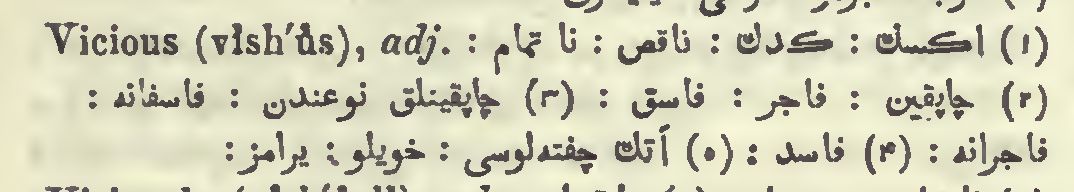 Vicious (vĭsh′ŭs), adj. : (۱) اكسك : كدك : ناقص : نا تمام :
(۲) چاپقین : فاجر : فاسق : (۳) چاپقینلق نوعندن : فاسقانه :
فاجرانه : (۴) فاسد : (۵) آتك چفته‌لوسی : خویلو : یرامز :